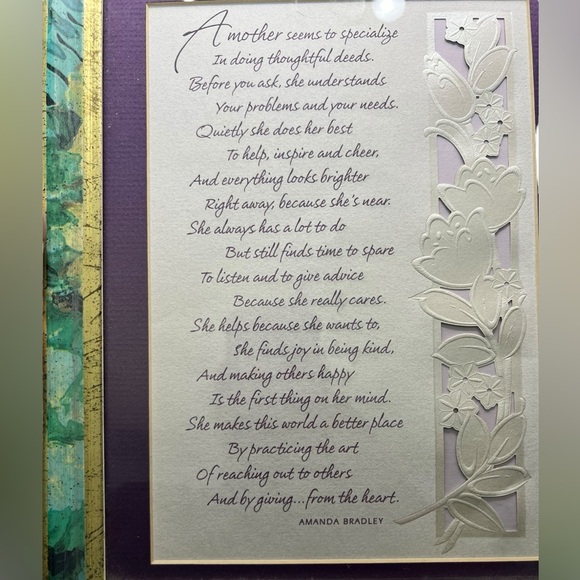 A mother seems to specialize
In doing thoughtful deeds.
Before you ask, she understands
Your problems and your needs.
Quietly she does her best
To help, inspire and cheer,
And everything looks brighter
Right away, because she's near.
She always has a lot to do
But still finds time to spare
To listen and to give advice
Because she really cares.
She helps because she wants to,
She finds joy in being kind,
And making others happy
Is the first thing on her mind.
She makes this world a better place
By practicing the art
Of reaching out to others
And by giving...from the heart.
AMANDA BRADLEY